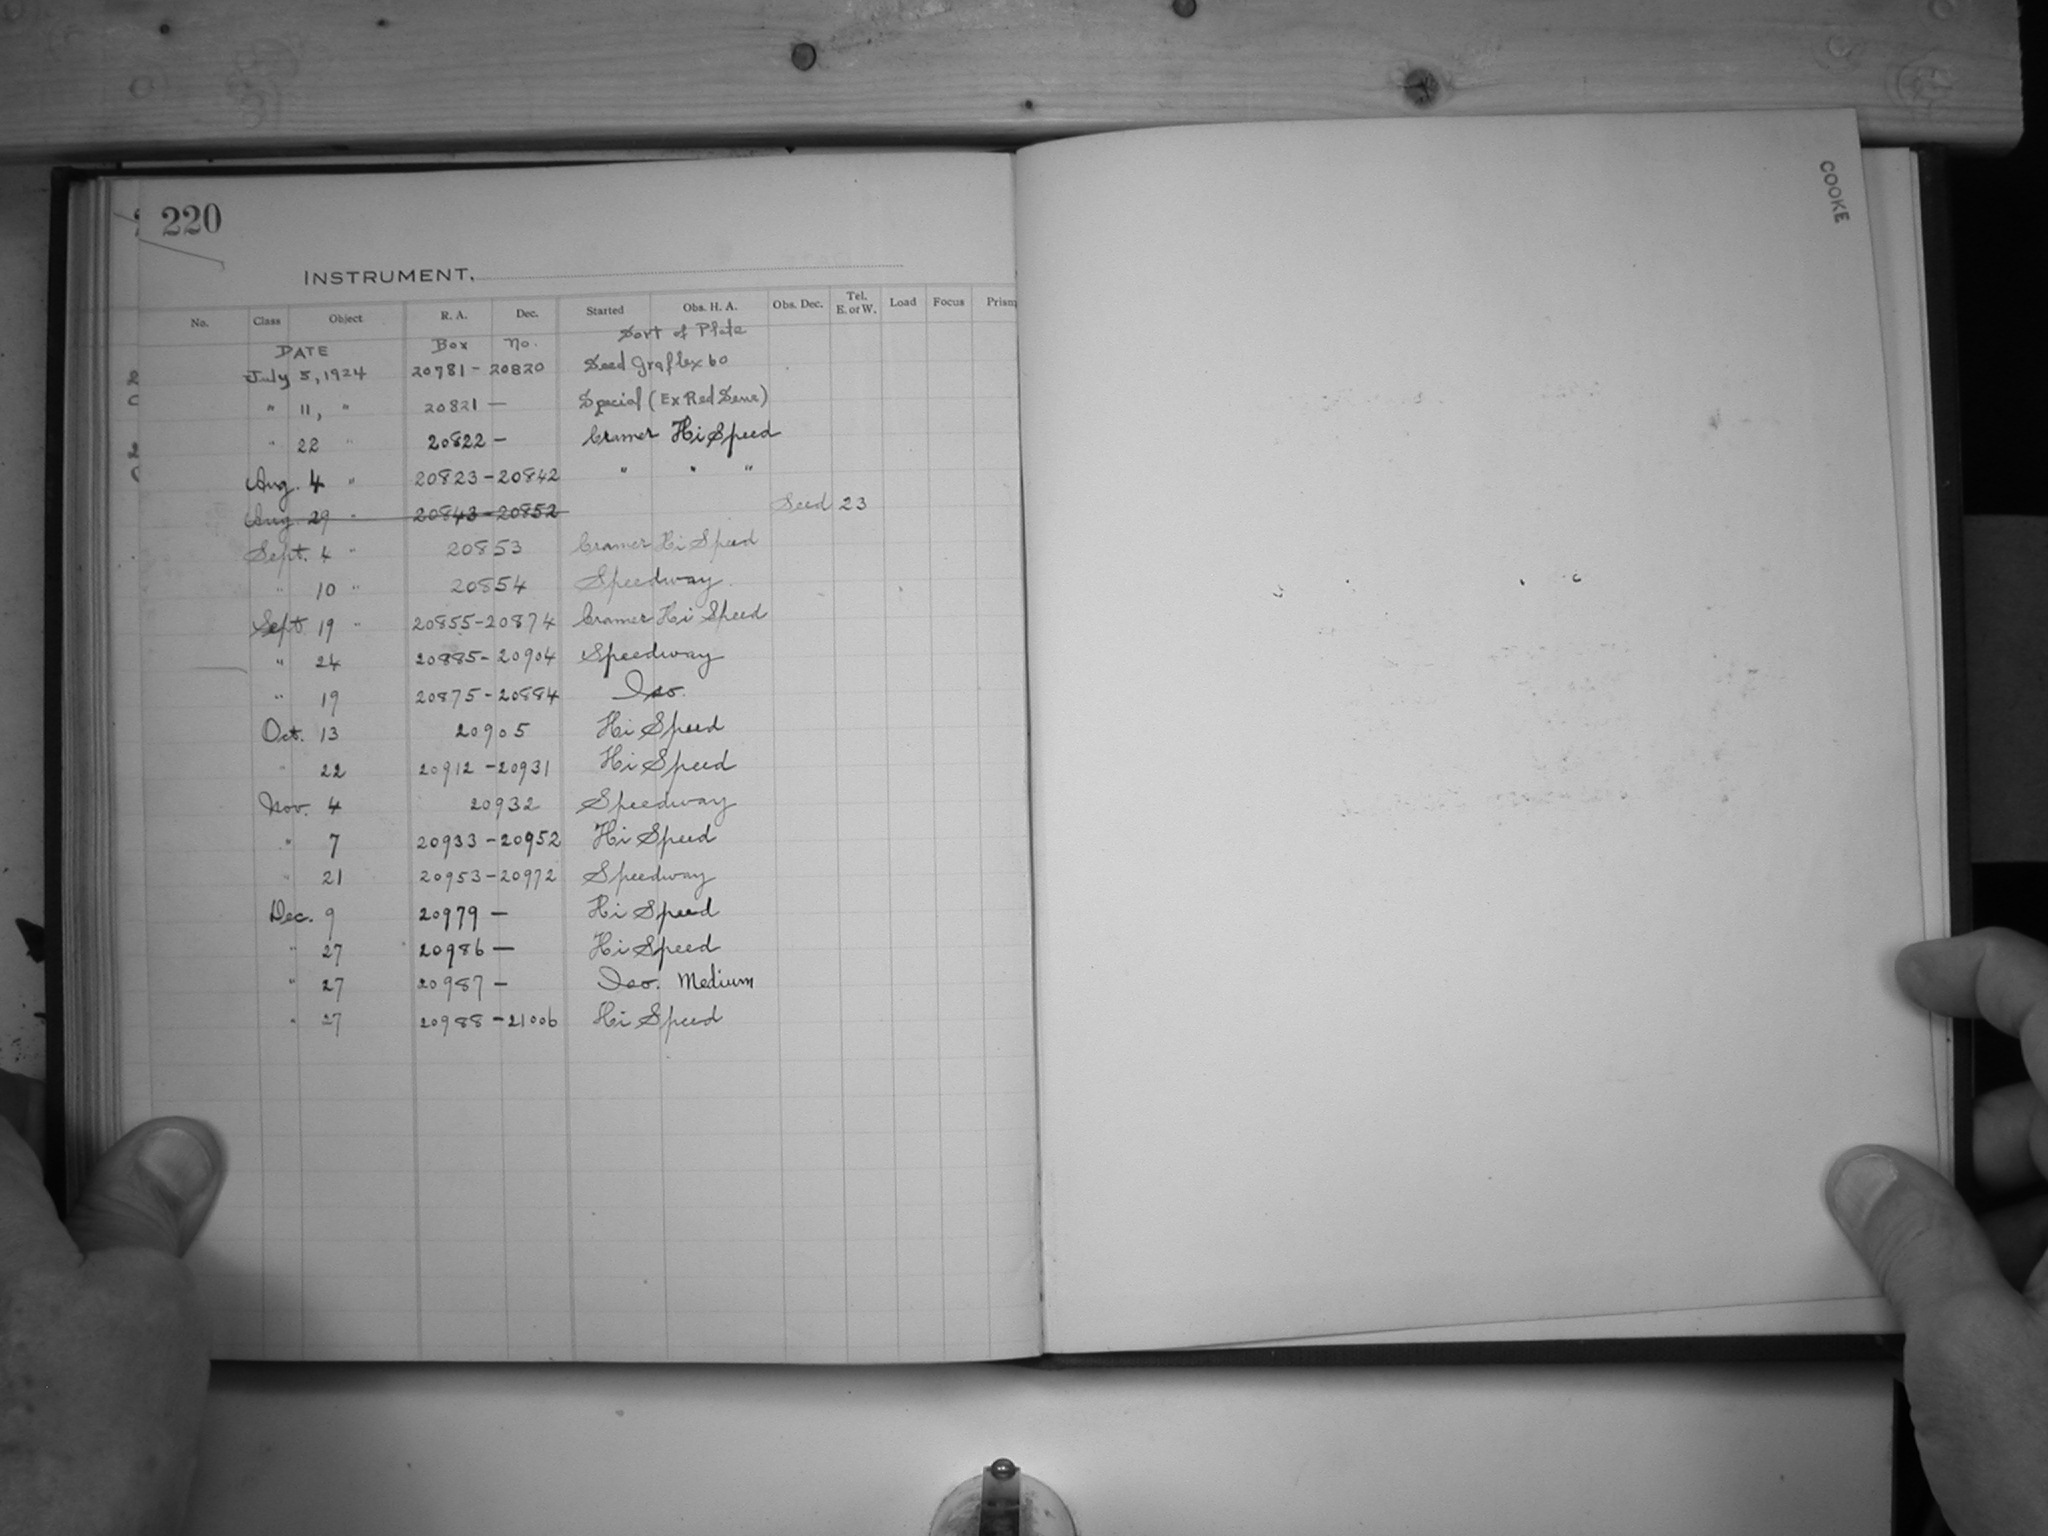 220
INSTRUMENT.
No. Class Object R. A. Dec. Started Obs. H. A. Obs. Dec. Tel. E. or W. Load Focus Prism
DATE Box No. Sort of Plate
July 5, 1924 20781 - 20820 Seed Graflex 60
" 11, " 20821 — Special (Ex Red Sens)
" 22 " 20822 — Cramer Hi Speed
Aug. 4 " 20823 - 20842 " " "
Aug 29 " 20843 - 20852 Seed 23
Sept. 4 " 20853 Cramer Hi Speed
" 10 " 20854 Speedway
Sept. 19 " 20855 - 20874 Cramer Hi Speed
" 24 20885 - 20904 Speedway
" 19 20875 - 20884 Iso.
Oct. 13 20905 Hi Speed
" 22 20912 - 20931 Hi Speed
Nov. 4 20932 Speedway
" 7 20933 - 20952 Hi Speed
" 21 20953 - 20972 Speedway
Dec. 9 20979 — Hi Speed
" 27 20986 — Hi Speed
" 27 20987 — Iso. Medium
" 27 20988 - 21006 Hi Speed
COOKE